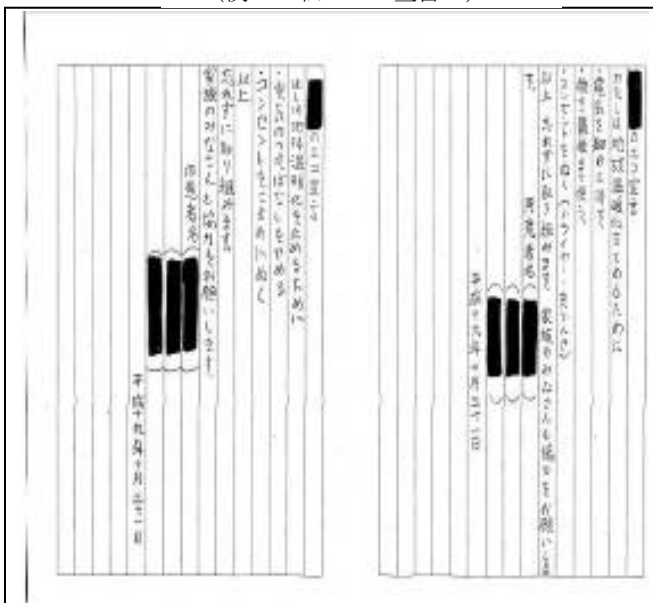 のエコ宣言
わたしは地球温暖化をとめるために
・電気を
・コンセントをぬく(ドライヤー
以上 忘れずに取り組みます。家族のみなさんも協力をお願いしま
す。
同意者名
平成十九年十月三十一日
のエコ宣言
ぼくは地球温暖化をとめるために
・電気のつけっぱなしをやめる
・コンセントをこまめにぬく
以上
忘れずに取り組みます。
家族のみなさんも協力をお願いします。
同意者名
平成十九年十月三十一日